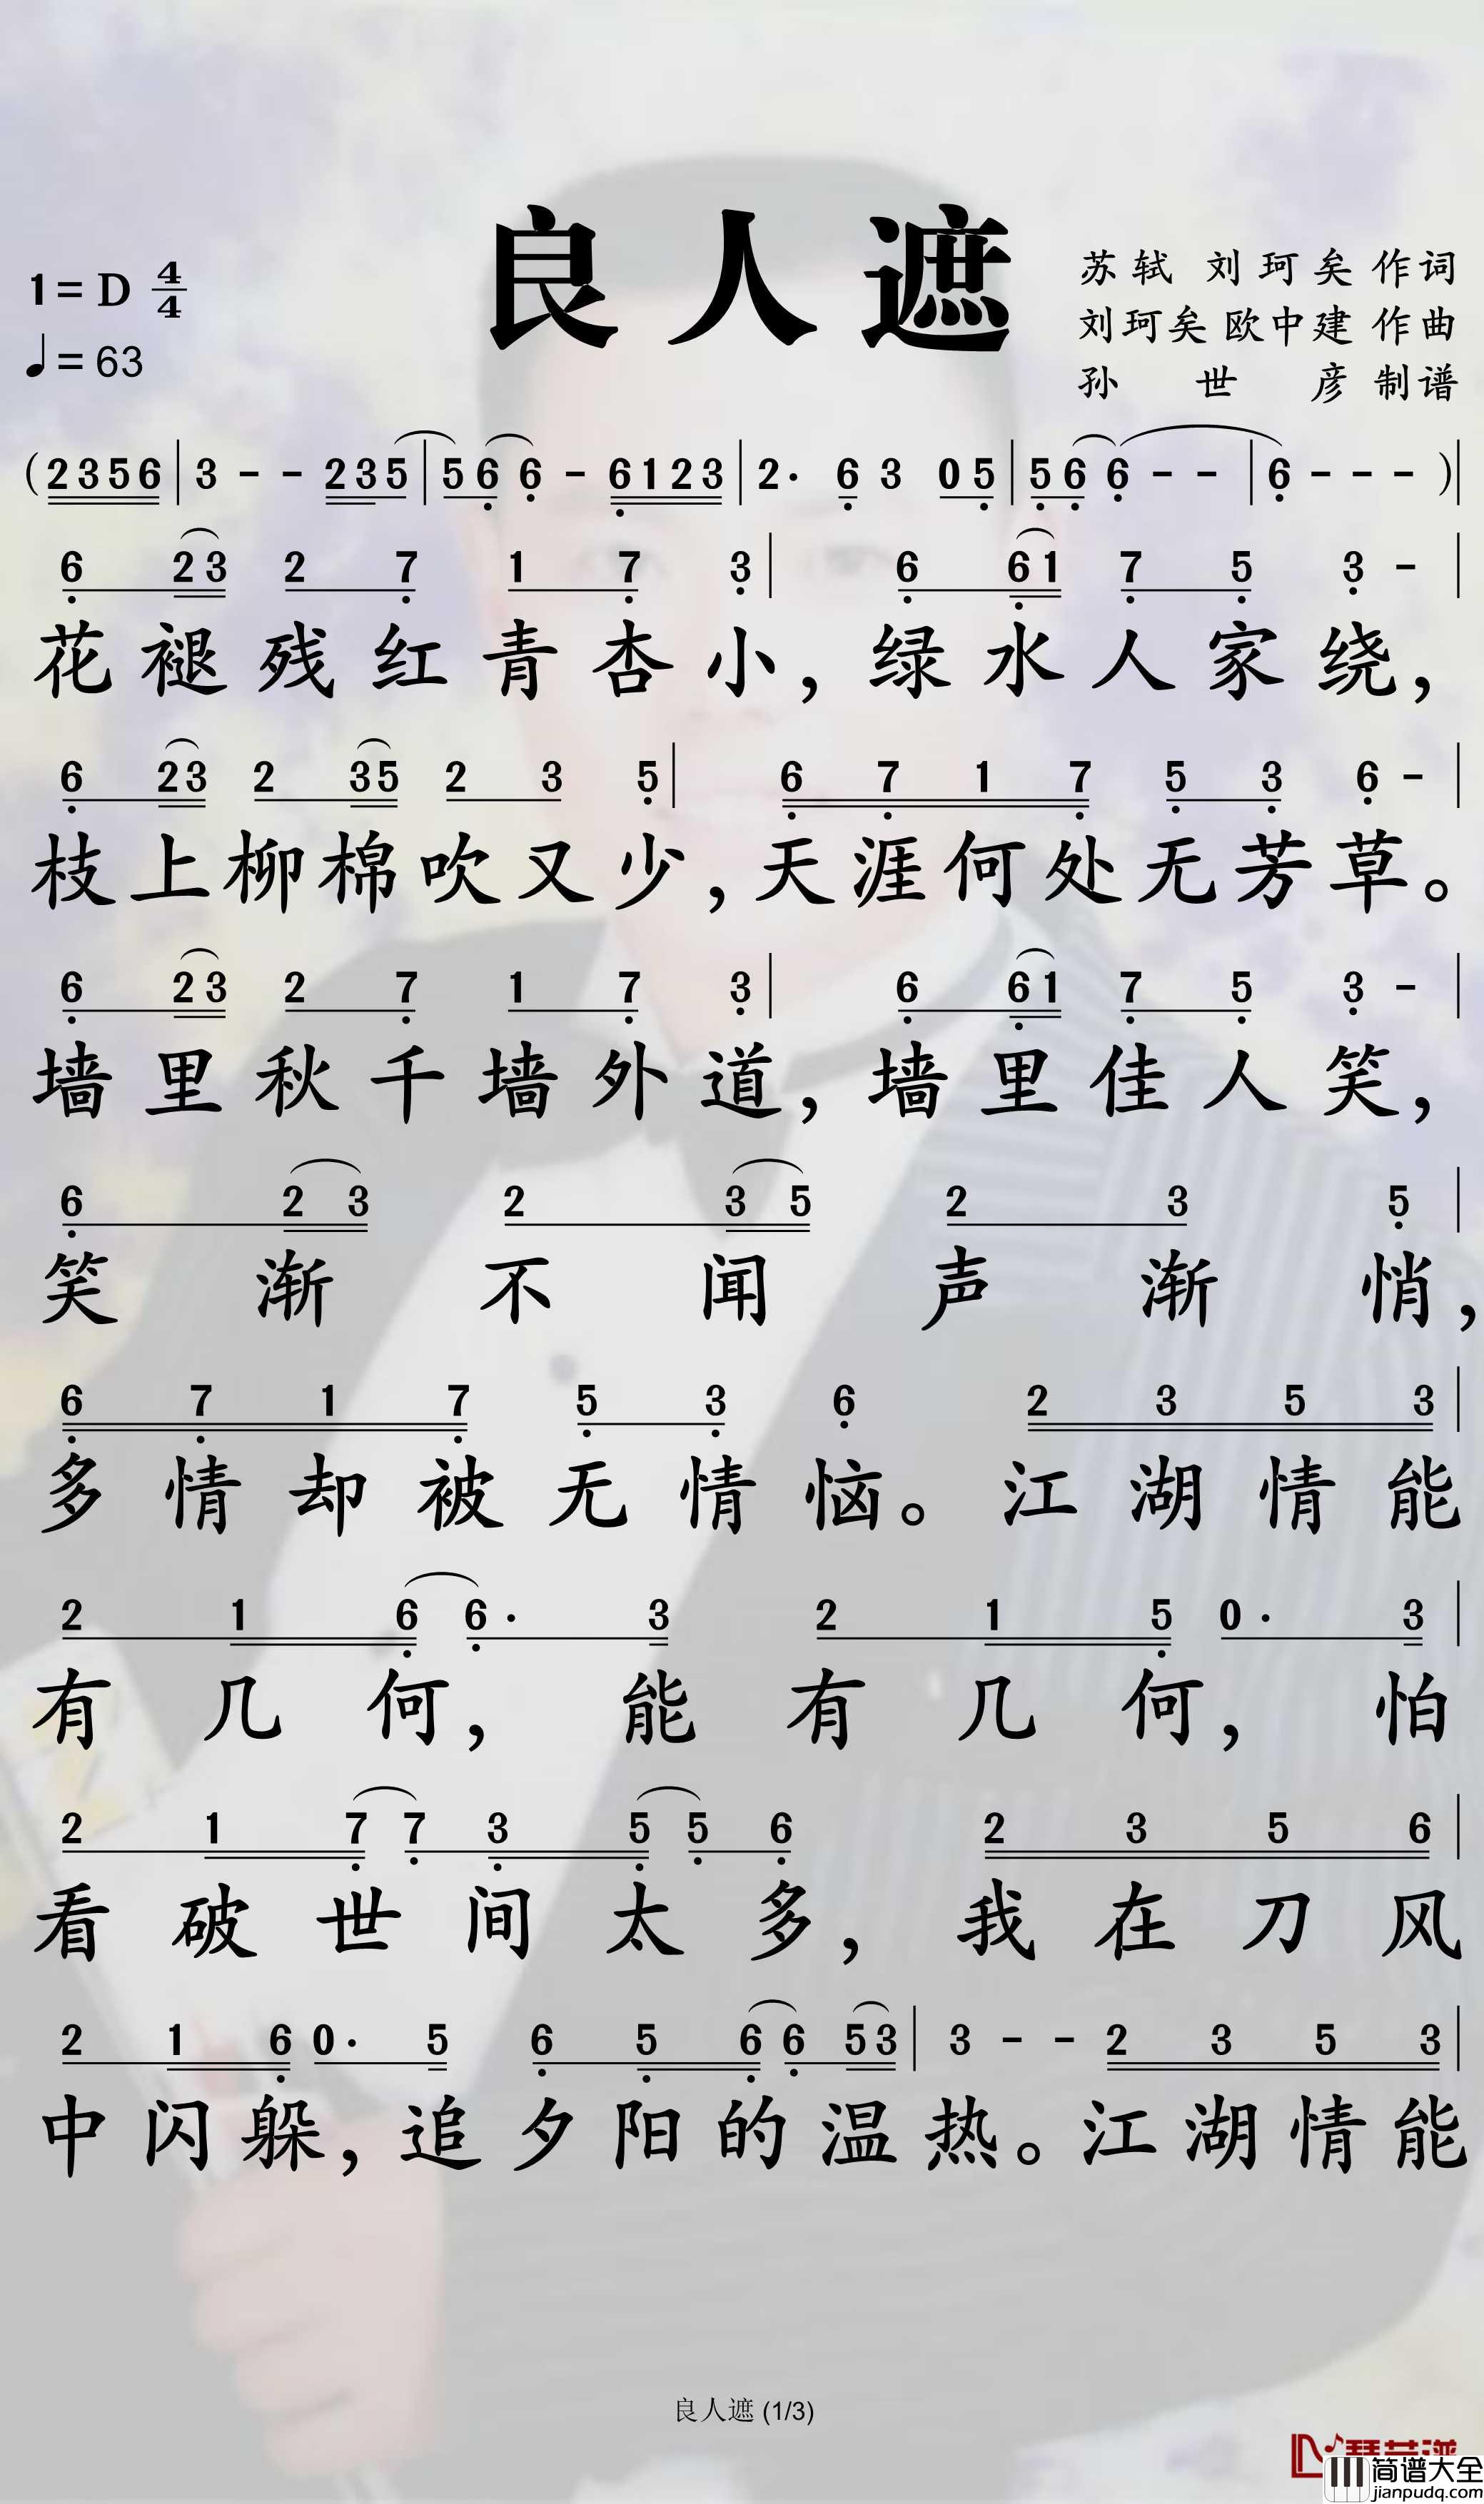 良人遮
1=D 4/4
♩=63
苏轼 刘珂矣 作词
刘珂矣 欧中建 作曲
孙世彦 制谱
(2356|3 - - 235|56 6 - 6123|2. 6 3 05|56 6 - -|6 - - -)|
6 23 2 7 1 7 3| 6 61 7 5 3 -|
花褪残红青杏小，绿水人家绕，
6 23 2 35 2 3 5| 6 7 1 7 5 3 6 -|
枝上柳棉吹又少，天涯何处无芳草。
6 23 2 7 1 7 3| 6 61 7 5 3 -|
墙里秋千墙外道，墙里佳人笑，
6 2 3 2 3 5 2 3 5|
笑渐不闻声渐悄，
6 7 1 7 5 3 6 2 3 5 3|
多情却被无情恼。江湖情能
2 1 6 6. 3 2 1 5 0. 3|
有几何，能有几何，怕
2 1 7 7 3 5 5 6 2 3 5 6|
看破世间太多，我在刀风
2 1 6 0. 5 6 5 6 6 53| 3 - - 2 3 5 3|
中闪躲，追夕阳的温热。江湖情能
良人遮 (1/3)
简谱大全
jianpudq.com